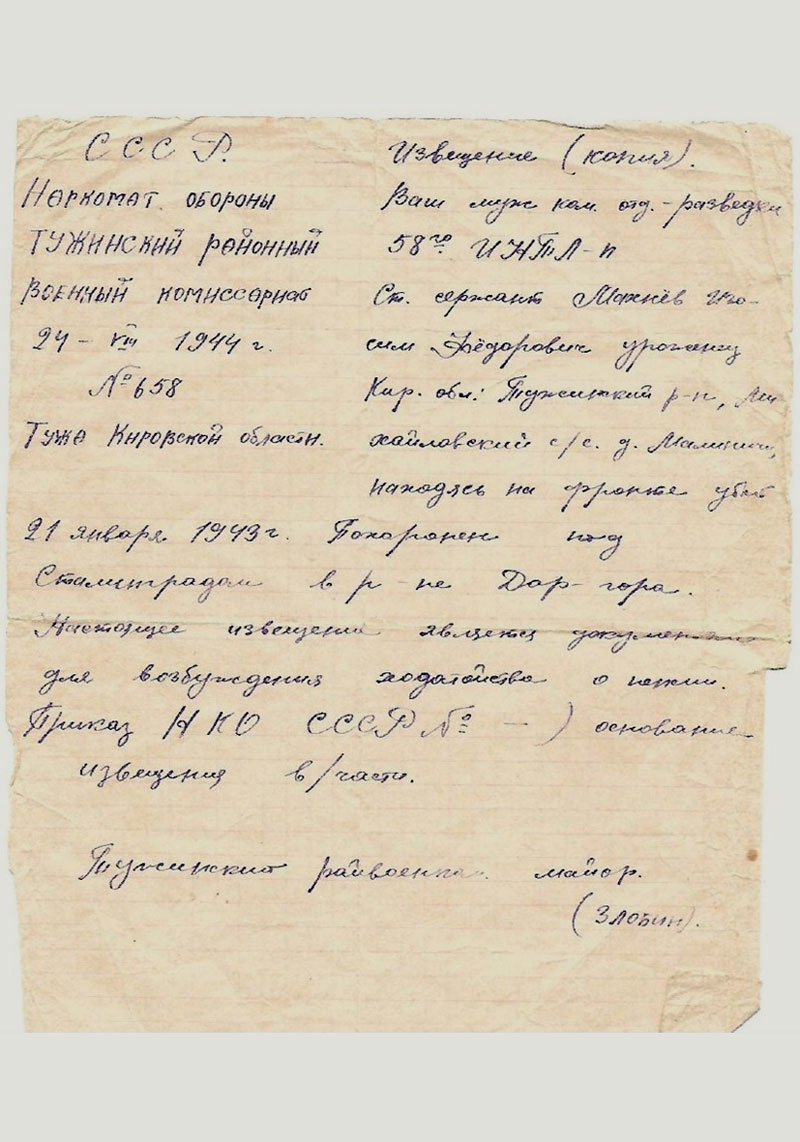 СССР.
Наркомат обороны
Тужинский районный
военный комиссариат
24 - VIII 1944 г.
№ 658
Тужа Кировской области.
Извещение (копия).
Ваш муж ком. отд. - разведки
58го
Ст. сержант Махнёв Изо-
сим Фёдорович уроженец
Кир. обл: Тужинский р-н, Ми
хайловский с/с. д.
находясь на фронте убит
21 января 1943 г. Похоронен под
Сталинградом в р-не Дар-гора.
Настоящее извещение является документом
для возбуждения ходатайства о пенсии.
Приказ НКО СССР № - ) основание
извещения в/части.
Тужинский райвоенком майор.
(Злобин).